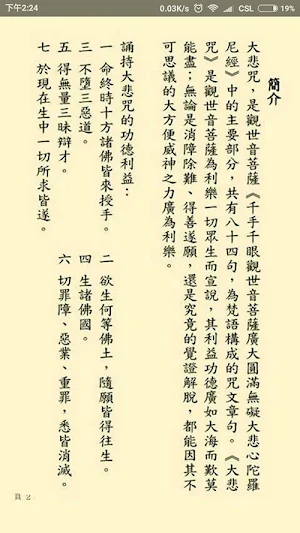 下午2:24 0.03K/s CSL 19%
簡介
大悲咒，是觀世音菩薩《千手千眼觀世音菩薩廣大圓滿無礙大悲心陀羅
尼經》中的主要部分，共有八十四句，為梵語構成的咒文章句。《大悲
咒》是觀世音菩薩為利樂一切眾生而宣說，其利益功德廣如大海而歎莫
能盡；無論是消障除難、得善遂願，還是究竟的覺證解脫，都能因其不
可思議的大方便威神之力廣為利樂。
誦持大悲咒的功德利益：
一 命終時十方諸佛皆來授手。 二 欲生何等佛土，隨願皆得往生。
三 不墮三惡道。 四 生諸佛國。
五 得無量三昧辯才。 六 切罪障、惡業、重罪，悉皆消滅。
七 於現在生中一切所求皆遂。
頁 2